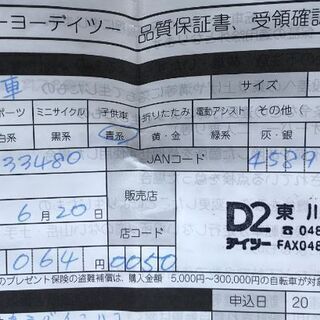 ーヨーデイツー 品質保証書、受領確認
車 サイズ
ポーツ ミニサイクル 子供車 折りたたみ 電動アシスト その他(
白系 黒系 青系 黄・金 緑系 灰・銀
33480 JANコード 4589
6月20日 販売店 D2 東川
☎048
064 店コード 0050 デイツー FAX048
のプレゼント保険の盗難補償は、購入金額 5,000円~300,000円の自転車が対象
申込日 20